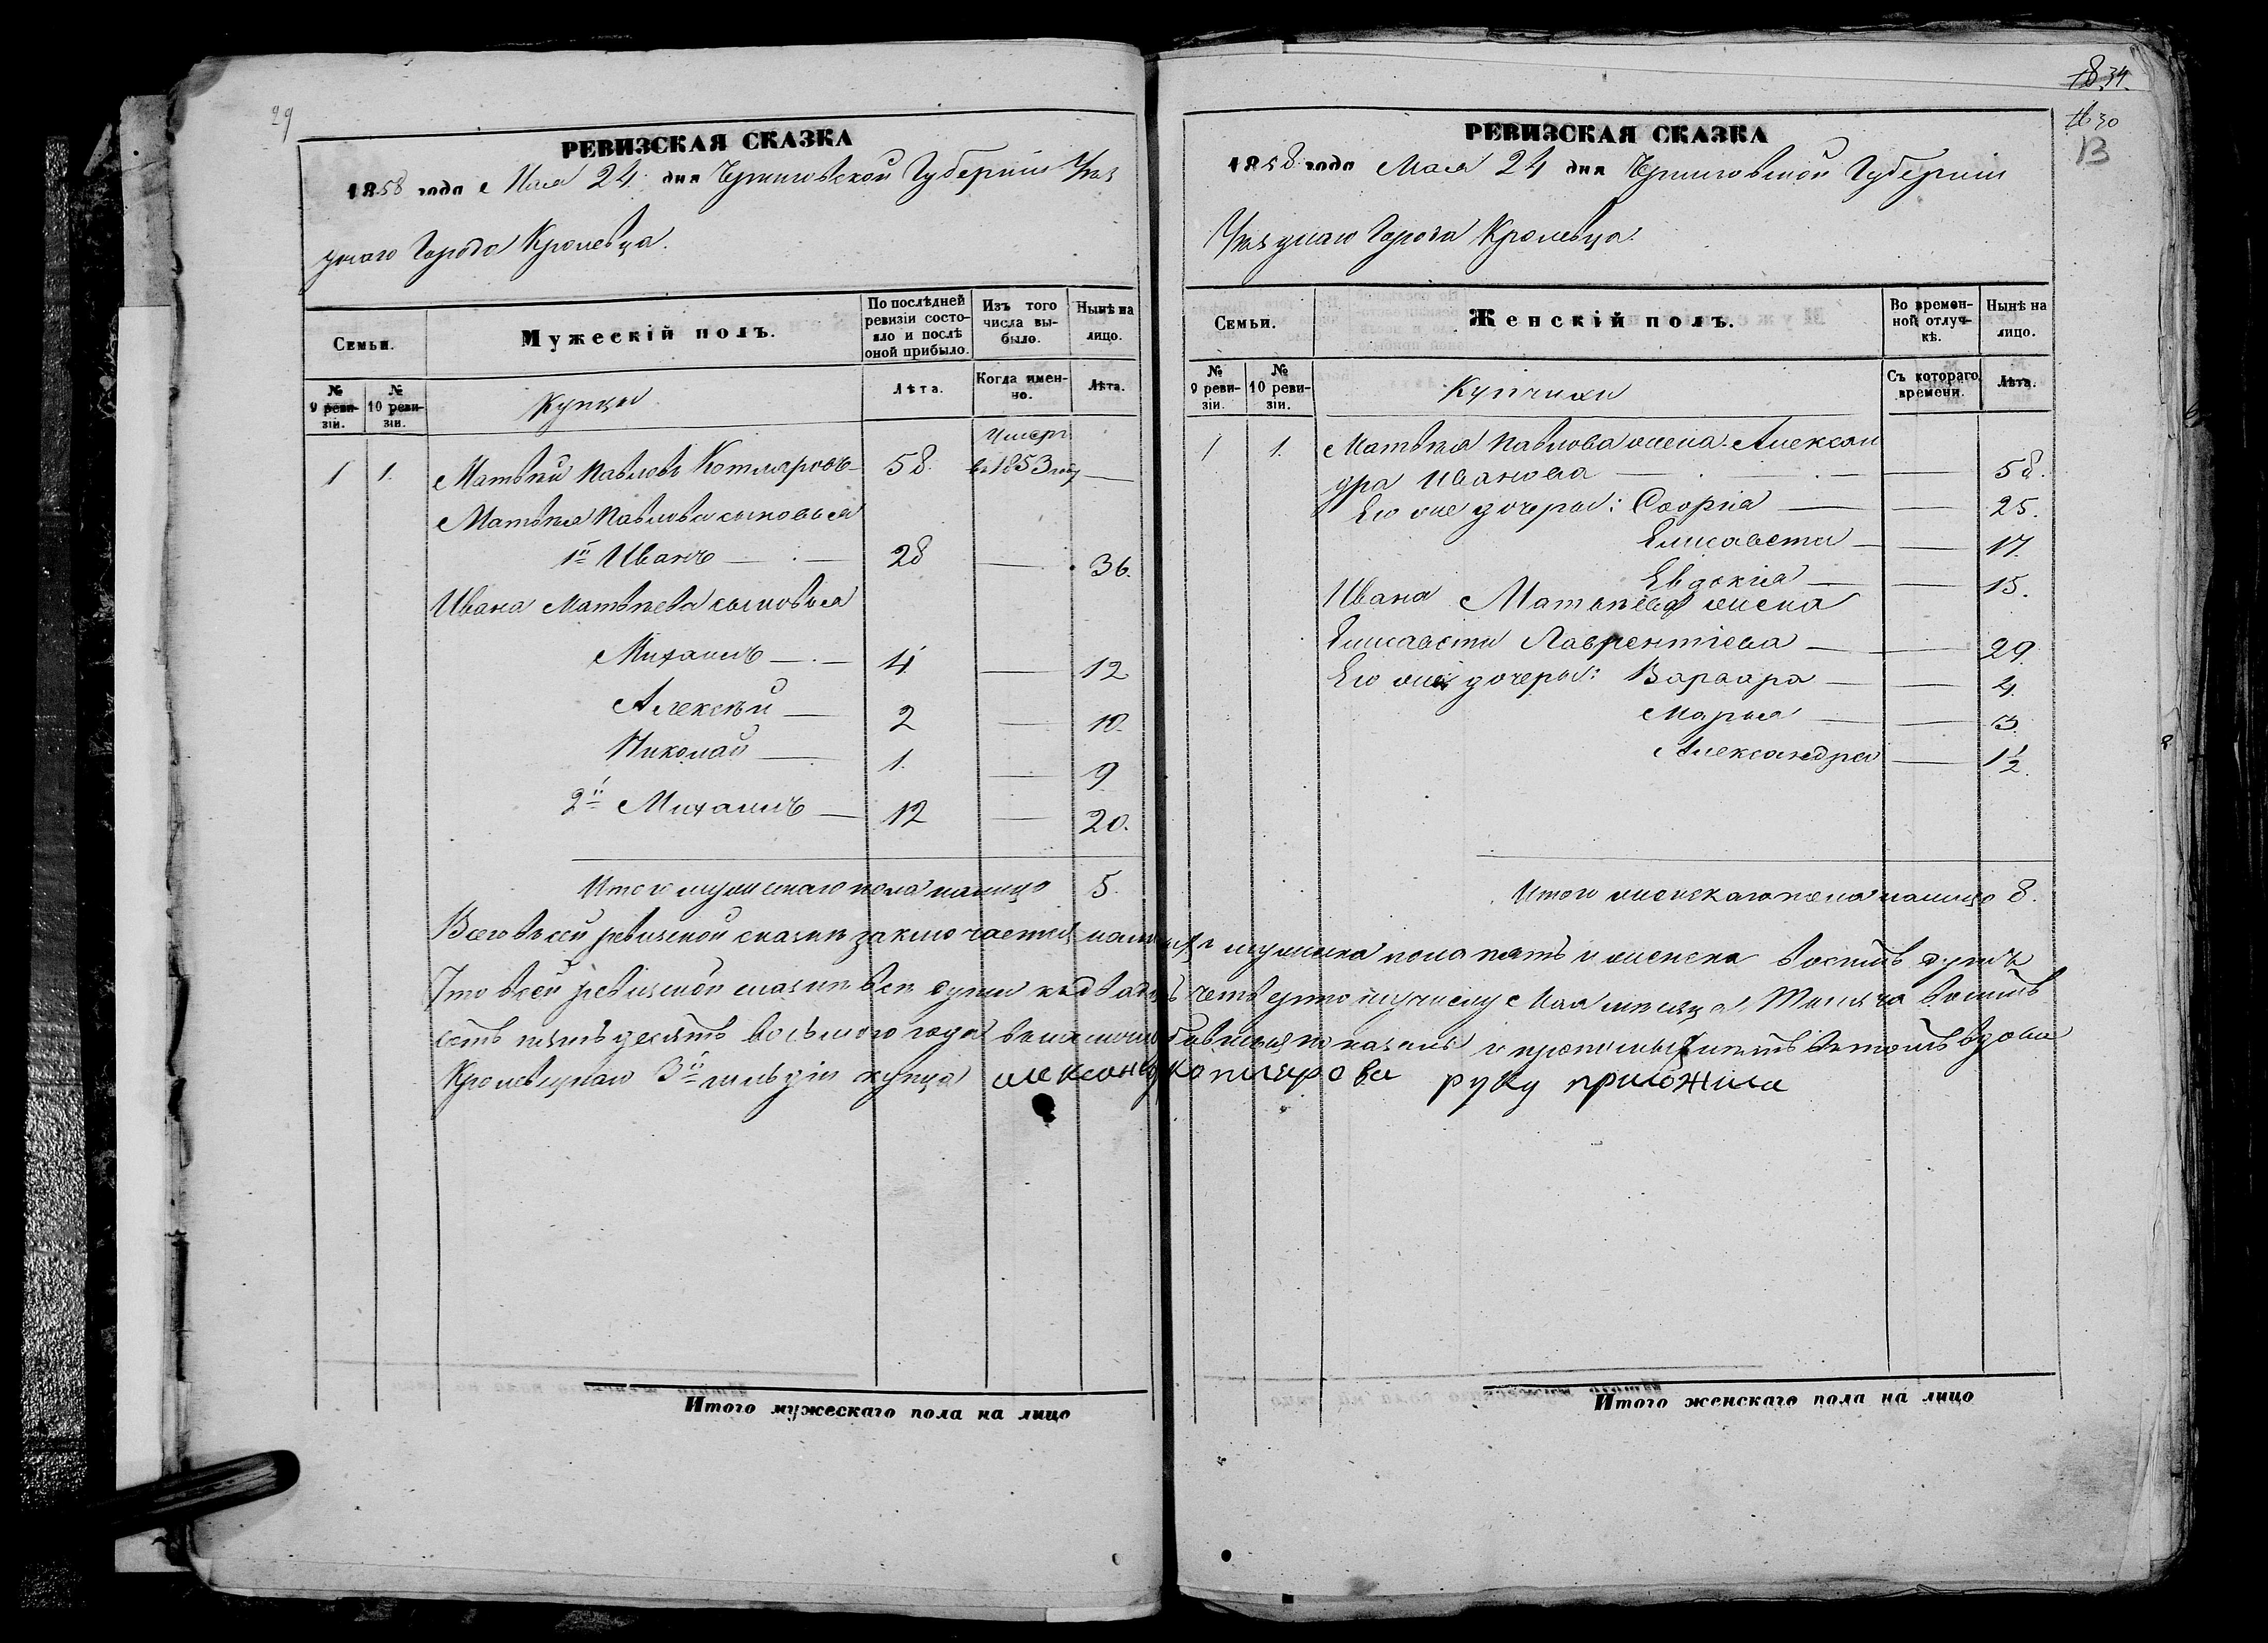 29
РЕВИЗСКАЯ СКАЗКА
1858 года Мая 24 дня Черниговской Губернии Уѣз
днаго Города Кролевца.
Семьи.
Мужескій полъ.
По послѣдней ревизіи состояло и послѣ оной прибыло.
Изъ того числа выбыло.
Нынѣ на лицо.
№ 9 ревизіи.
№ 10 ревизіи.
Купцы
Лѣта.
Когда именно.
Лѣта.
1 1. Матвѣй Павловъ Котляровъ 58. Умеръ въ 1853 году —
Матвѣя Павлова сыновья
1й Иванъ — 28 — 36.
Ивана Матвѣева сыновья
Михаилъ — 4 — 12
Алексѣй — 2 — 10.
Николай — 1. — 9
2й Михаилъ — 12 — 20.
Итого мужескаго пола налицо 5.
18 34.
16 30
13
РЕВИЗСКАЯ СКАЗКА
1858 года Мая 24 дня Черниговской Губернии
Уѣзднаго Города Кролевца.
Семьи.
Женскій полъ.
Во временной отлучкѣ.
Нынѣ на лицо.
№ 9 ревизіи.
№ 10 ревизіи.
Купчихи
Съ котораго времени.
Лѣта.
1 1. Матвѣя Павлова жена Алексан
дра Иванова — — 58.
Его же дочеры: Софія — — 25.
Елисавета — — 17.
Евдокия — — 15.
Ивана Матвѣева жена
Елисавета Лаврентіева — — 29.
Его же дочеры: Варвара — — 4.
Марья — — 3.
Александра — 1 1/2.
Итого женскаго пола налицо 8.
Всего въ сей ревизской сказкѣ заключается налицо мужеска пола пять и женска восемь душъ
Что въ сей ревизской сказкѣ всѣ души къ двадцать четвертому числу Мая мѣсяца Тысяча восемь
сотъ пятьдесятъ восьмого года показаны и пропу нѣтъ въ томъ вдова
Кролевецкаго 3й гильдіи купца Котлярова руку приложила
Итого мужескаго пола на лицо
Итого женскаго пола на лицо